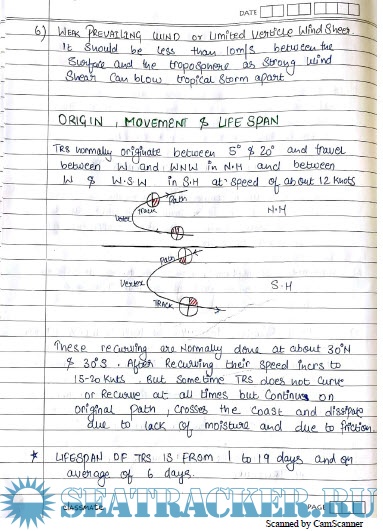 DATE
6) WEAK PREVAILING WIND or Limited Verticle Wind Sheer.
It should be less than 10m/s between the
Surface and the troposphere as strong wind
Shear Can blow tropical storm apart
ORIGIN, MOVEMENT & LIFE SPAN
TRS normally originate between 5° & 20° and travel
between W and WNW in N.H and between
W & W.S.W in S.H at speed of about 12 knots
Path
TRACK
N.H
Vertex
Path
Vertex
S.H
TRACK
These recurving are Normally done at about 30°N
& 30°S. After Recurving their speed incrs to
15-20 knts. But sometime TRS does not curve
or Recurve at all times but Continue on
original Path, crosses the coast and dissipate
due to lack of moisture and due to friction.
* LIFESPAN OF TRS IS FROM 1 to 19 days and on
average of 6 days.
SEATRACKER.RU
classmate
PAGE
Scanned by CamScanner